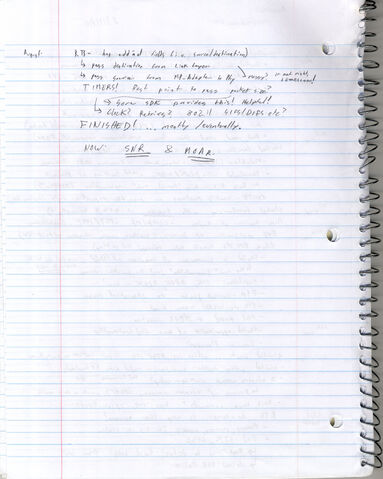 August: RTS - has added fields (i.e. source/destination)
↳ pass destination from Link Layer
↳ pass source from Adapter to Phy messy? is not right,
TIMERS! Best point to pass packet size?
↳ Some SDK provides this! Helpful!
↳ Clock? Retries? 802.11 SIFS/DIFS etc?
FINISHED! ... mostly/eventually.
NOW: SNR & MOAR